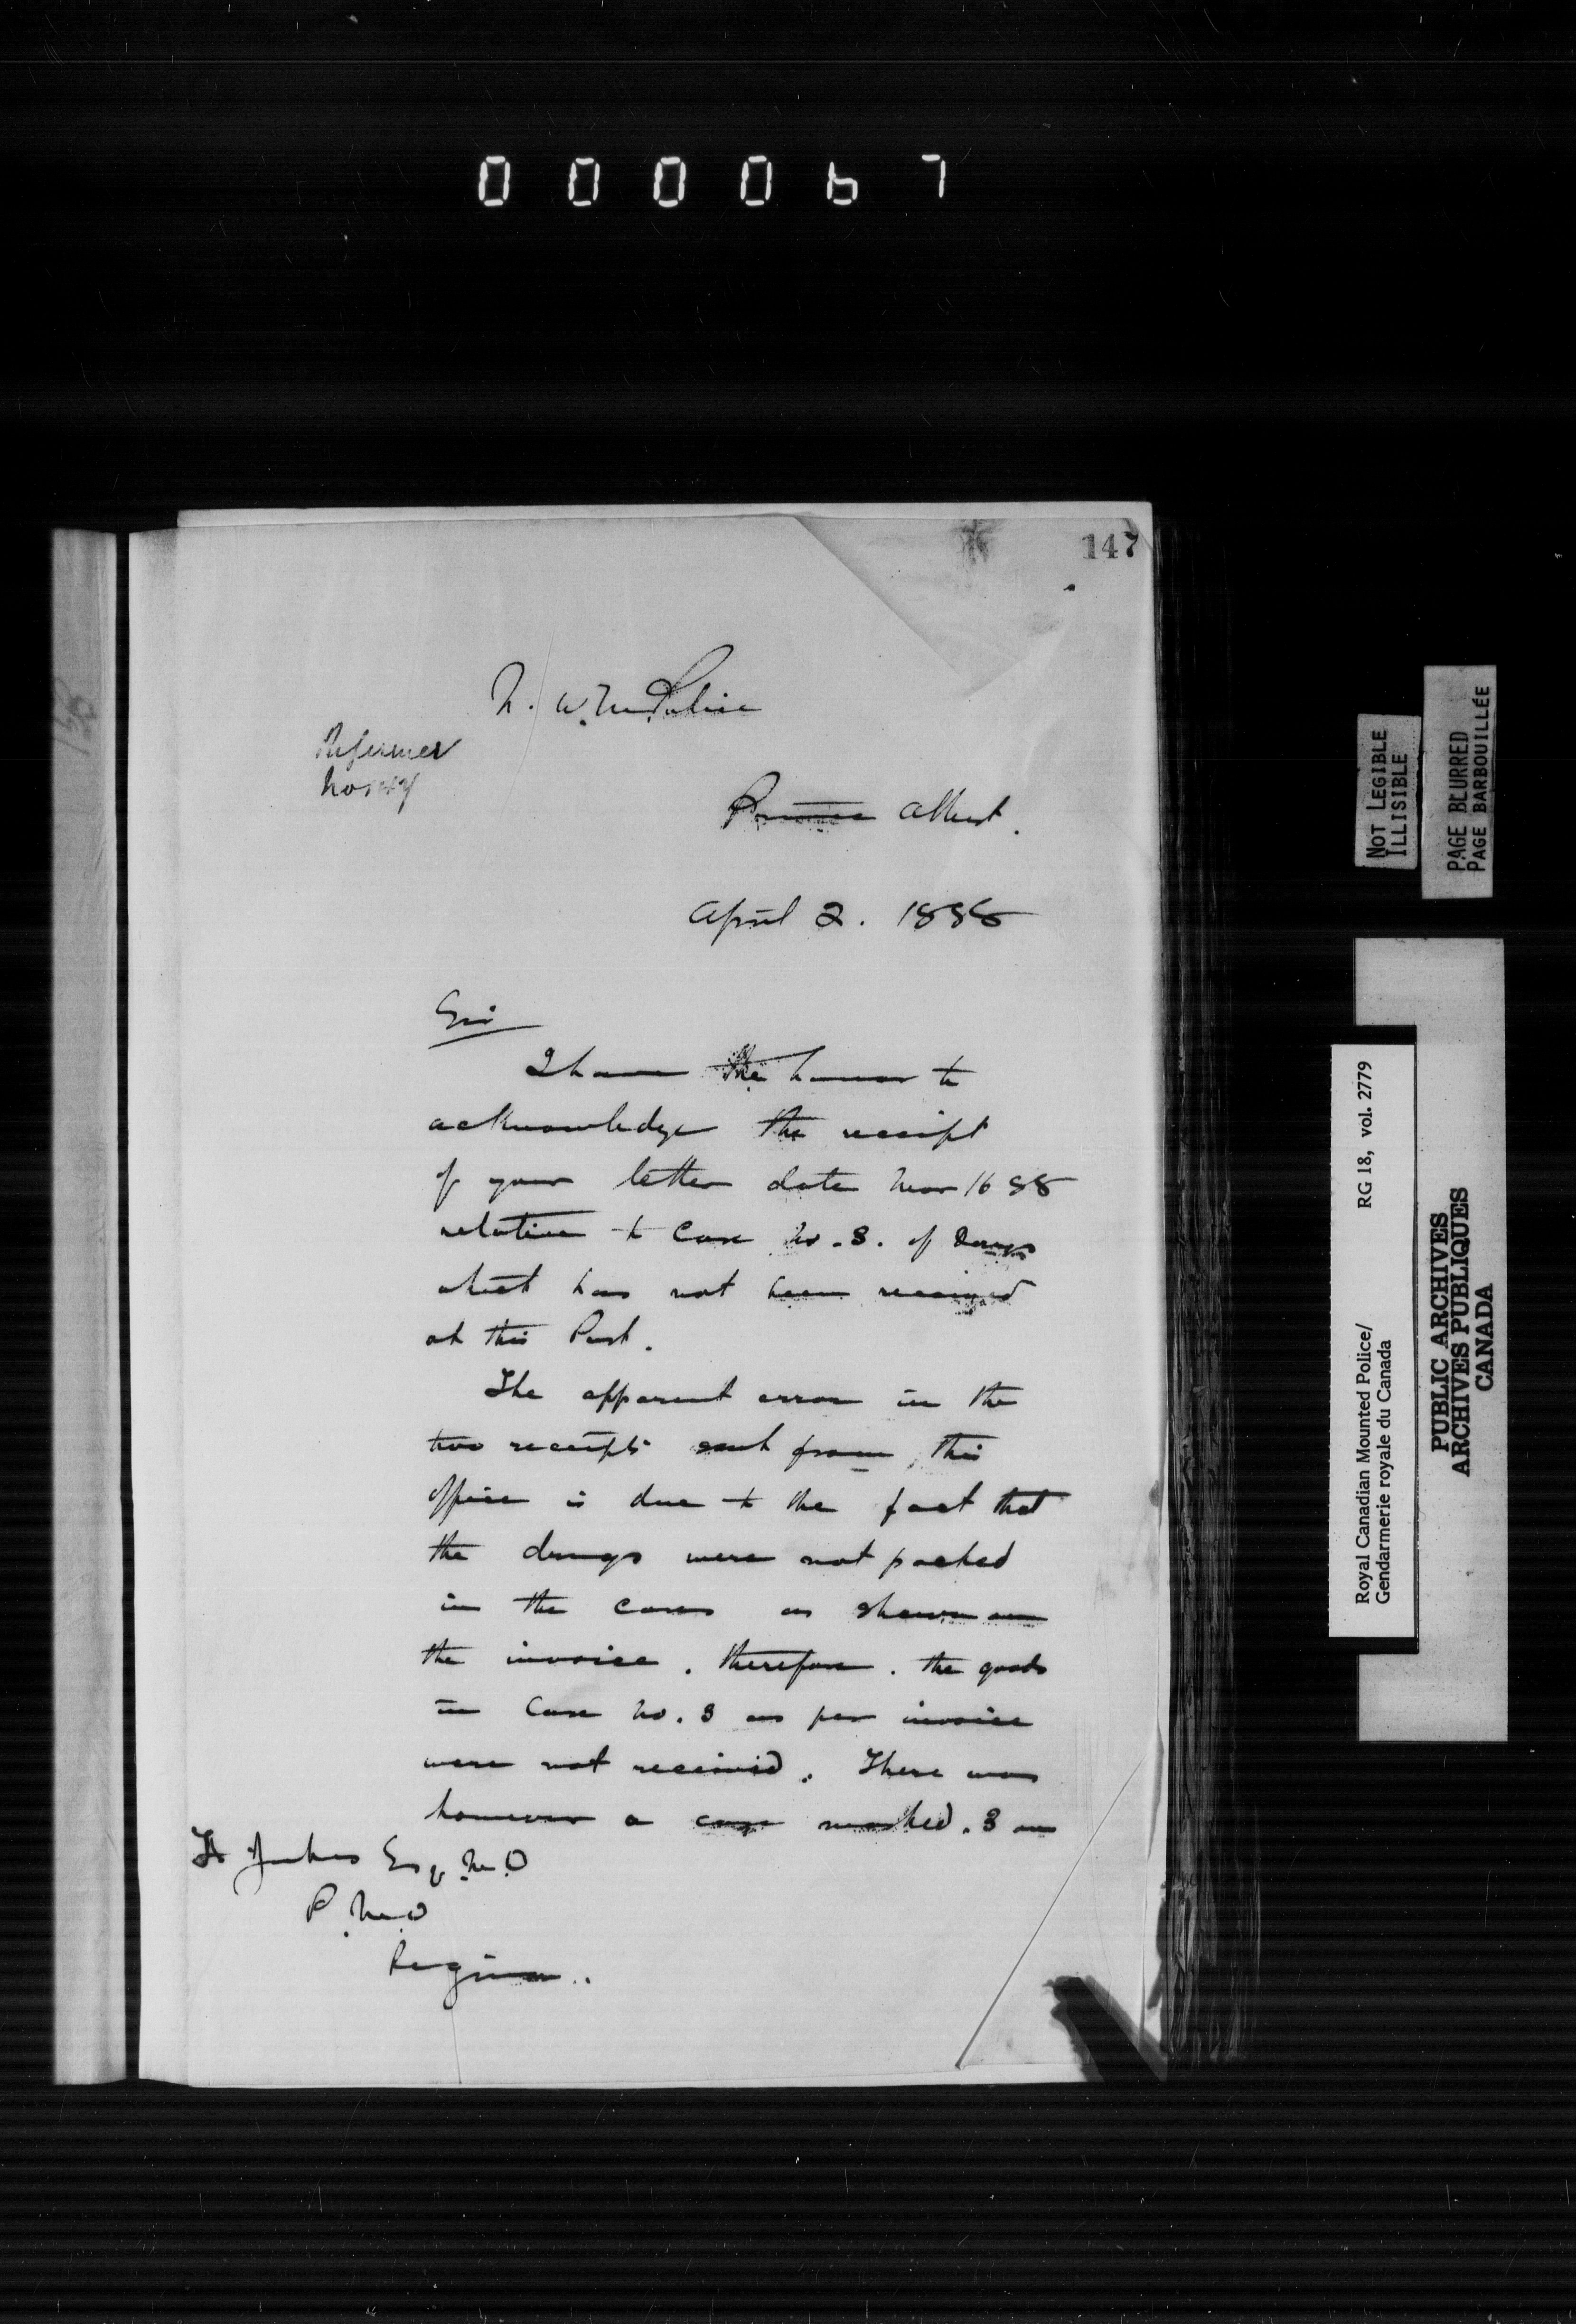 000067
147
N. W. M. Police
Reference
Prince Albert.
April 2. 1888
Sir
I have the honor to
acknowledge the receipt
of your letter date Mar 16 88
relative to Case No. 3. of Drugs
which has not been received
at this Post.
The apparent error in the
two receipts sent from this
office is due to the fact that
the drugs were not packed
in the cases as shewn on
the invoice. therefore. the goods
in Case No. 3 as per invoice
were not received. There was
however a case marked. 3 an
A Jukes Esq. M.D
P.M.O
Regina..
NOT LEGIBLE
ILLISIBLE
PAGE BLURRED
PAGE BARBOUILLÉE
Royal Canadian Mounted Police/ RG 18, vol. 2779
Gendarmerie royale du Canada
PUBLIC ARCHIVES
ARCHIVES PUBLIQUES
CANADA